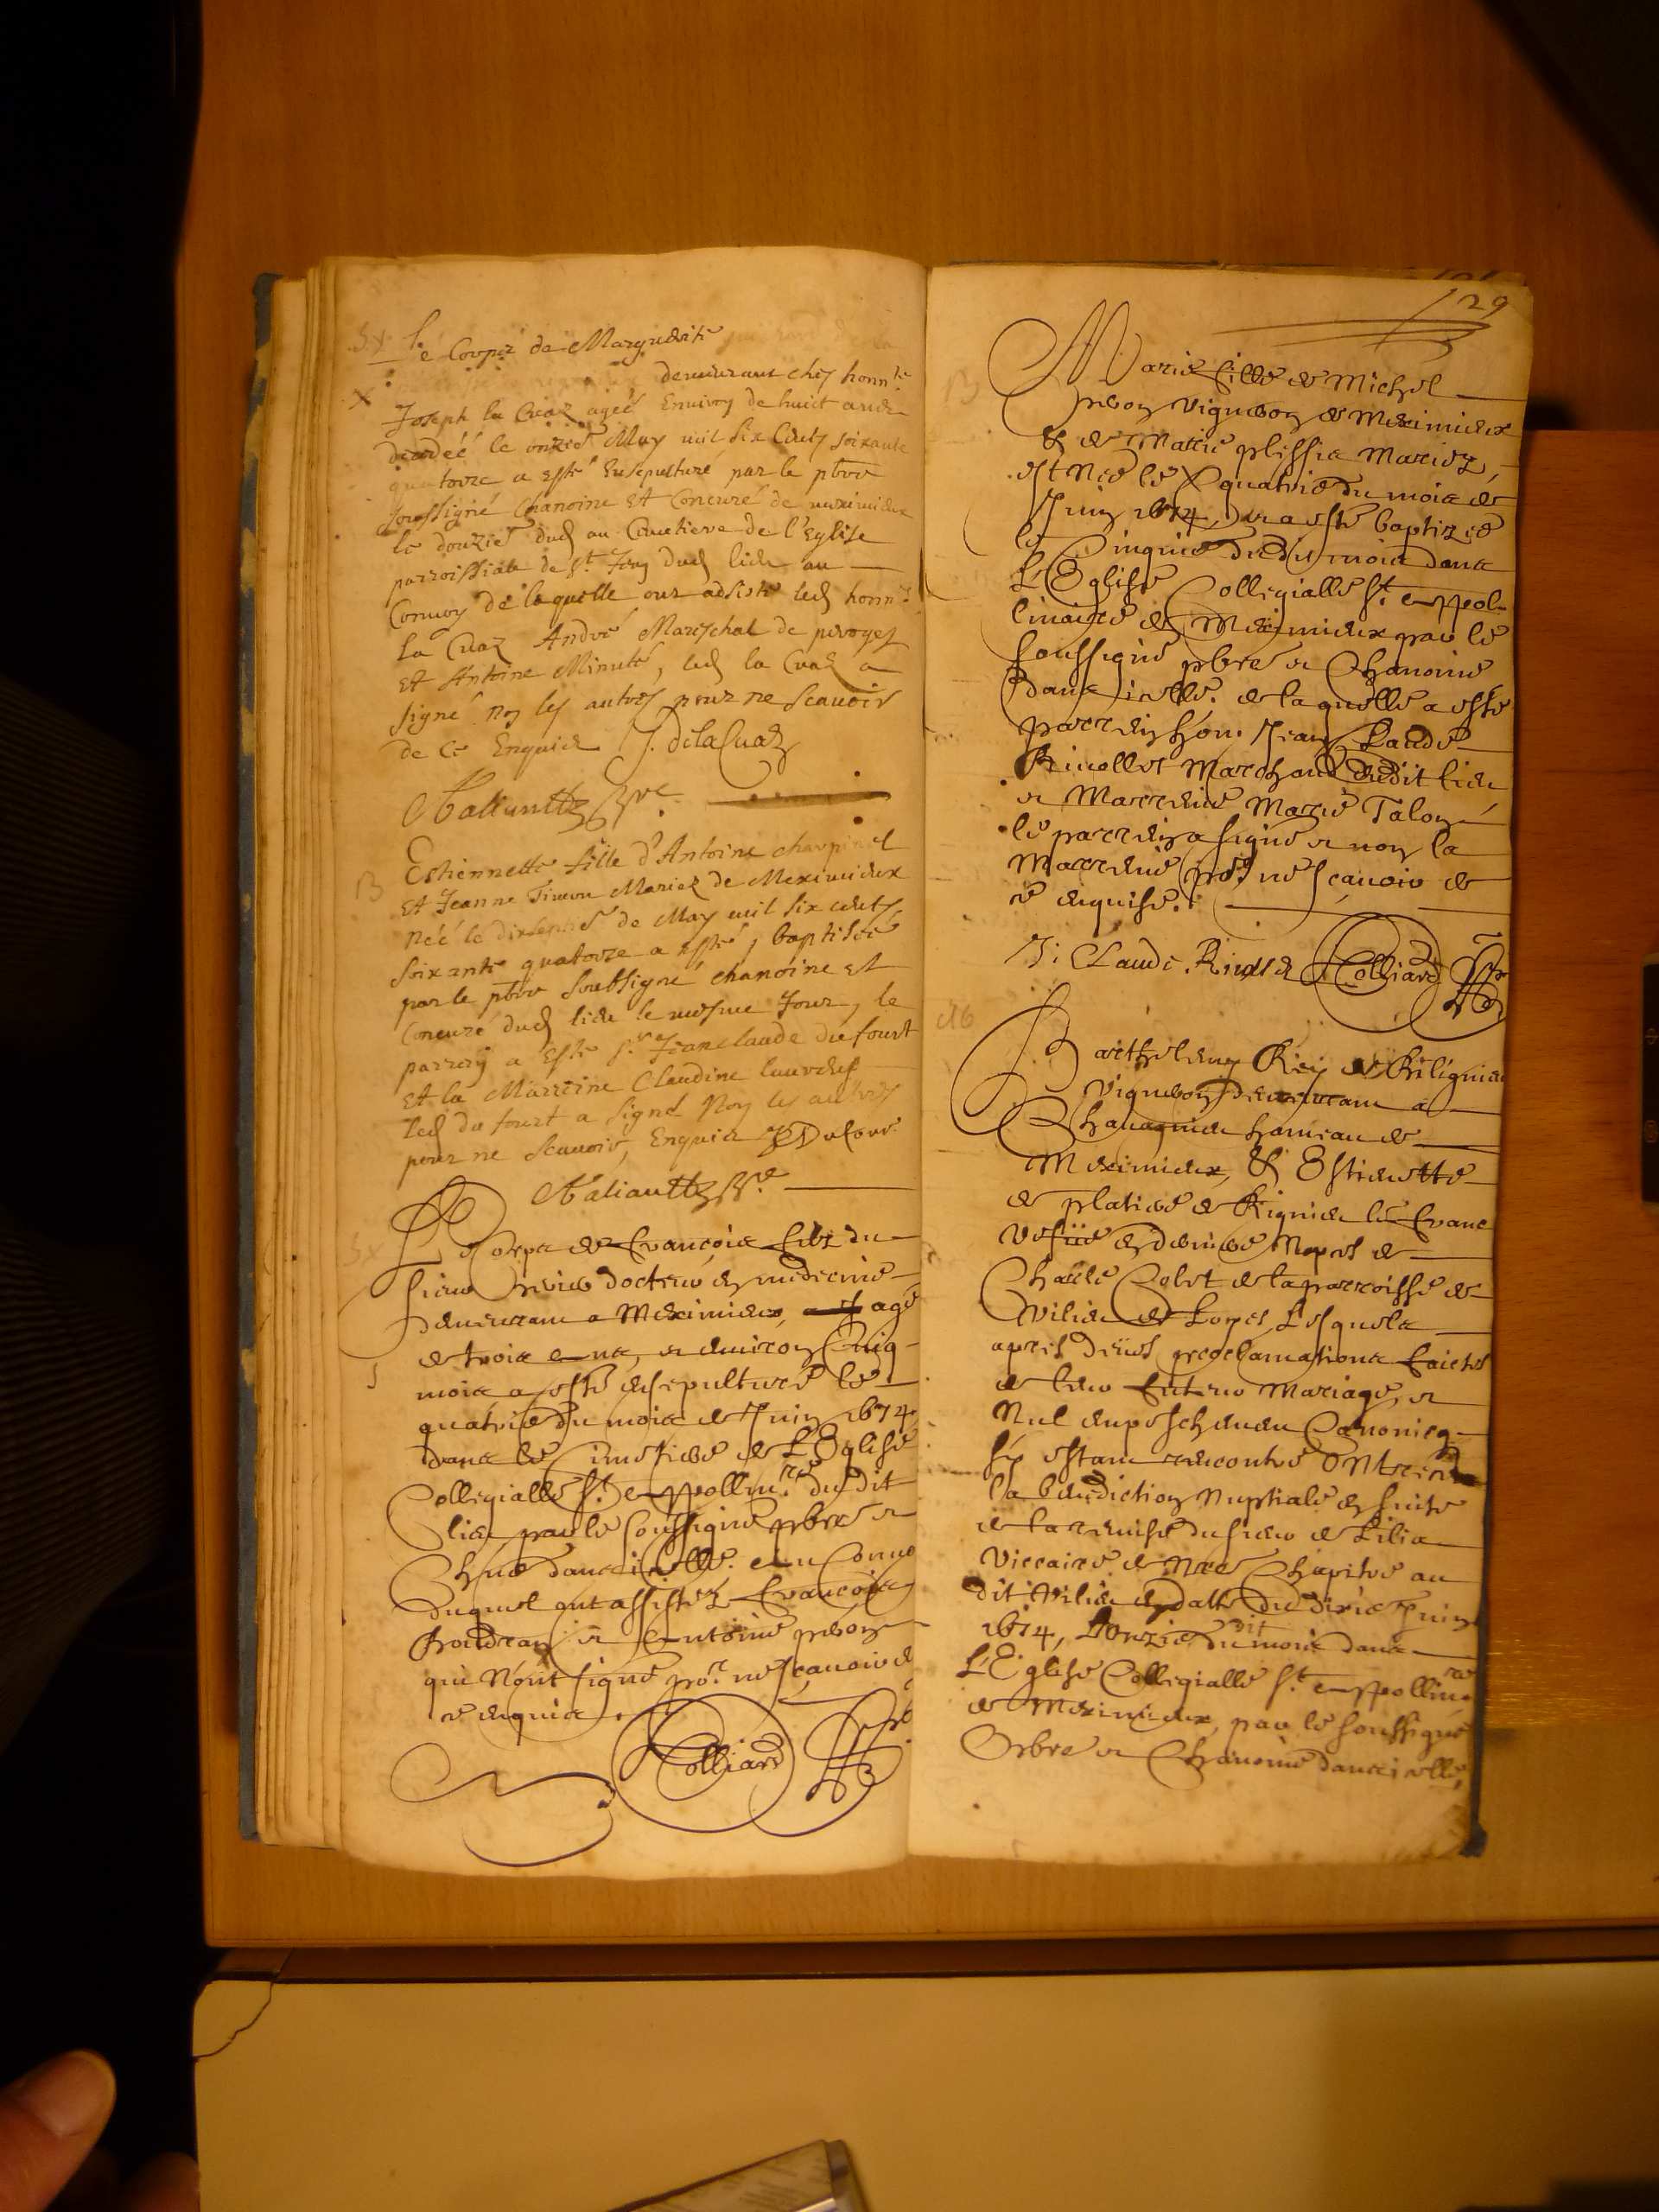 Le Corps de Marguerite
demeurant chez honn.ble
Joseph la Cuaz agée Environ de huict ans
decedéé le onzie May mil six Cents soixante
quatorze a esté Ensepulturé par le pbre
soussigné Chanoine Et Concuré de meximieux
le douzie dud au Cimetiere de l'Eglise
parroissiale de St Jean dud lieu au
Convoy de laquelle ont adsisté led honn.
la Cuaz André Mareschal de peroges
Et Antoine Minuté, led la Cuaz a
signé non les autres pour ne scavoir
de ce Enquis J. delaCuaz
Estiennette fille d'Antoine charpinel
Et Jeanne Simon Mariez de Meximieux
néé le dixseptie de May mil six cents
soixante quatorze a esté baptiséé
par le pbre soubsigné chanoine et
Concuré dud lieu le mesme Jour, le
parrin a esté sr Jeanclaude du fourt
Et la Marreine Claudine
led du fourt a signé Non les autres
pour ne scavoir, Enquis Dufour
Le Corps de Francois fils du
sieur docteur en medecine
demeurant a Meximieux, agé
de trois ans, et environ Cinq
mois a esté ensepulturé le
quatrie du mois de Juin 1674
dans le Cimetiere de L'Eglise
Collegialle St Appollin.re dudit
lieu par le soussigné pbre et
Chne dans icelle. au Convoy
duquel ont assistez Francois
et Antoine
qui n'ont signé po.r ne scavoir de
ce enquis.
Colliard
129
Marie fille de Michel
vigneron de Meximieux
& de Marie plissia Mariez,
est Née le quatrie du mois de
Juin 1674, et a esté baptizée
le Cinquie dudit mois dans
L'Eglise Collegialle St Appol-
linaire de Meximieux par le
soussigné pbre et Chanoine
dans icelle. de laquelle a esté
parrein hon. Jean Claude
Marchand dudit lieu
et Marreine Marie Talon
le parrein a signé et non la
Marreine po.r ne scavoir de
ce enquise.
J: Claude Colliard
Barthelemy Rey de
vigneron demeurant a
Chavagnieu hameau de
Meximieux, & Estiennette
de platiere de Rignieu le Franc
vefve en dernieres Nopces de
Charle de la parroisse de
Vilieu de Loyes, Lesquels
apres deües proclamations faictes
de leur futeur Mariage, et
Nul enpeschement Canonicq
sy estant rencontré ont
la benediction Nuptiale en suite
de la remise du sieur de Lilia
viccaire de Nre Chapitre au
dit Vilieu en datte du dixie Juin
1674, L'onzie dudit mois dans
L'Eglise Collegialle St Appollin.re
de Meximieux, par le soussigné
Pbre et Chanoine dans icelle,